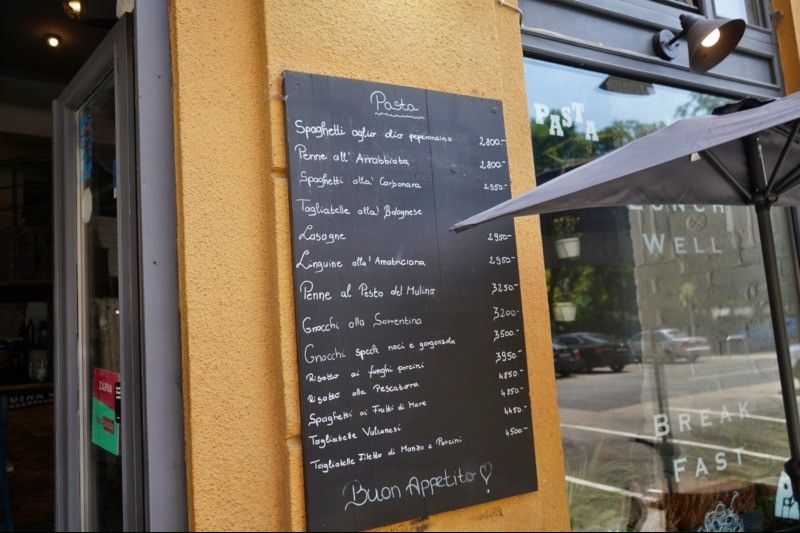 Pasta
Spaghetti aglio olio peperoncino 2800.-
Penne all' Arrabbiata 2800.-
Spaghetti alla' Carbonara 2950.-
Tagliatelle alla' Bolognese
Lasagne 2950.-
Linguine alla' Amatriciana 2950.-
Penne al Pesto del Mulino 3250.-
Gnocchi alla Sorrentina 3200.-
Gnocchi speck noci e gorgonzola 3500.-
Risotto ai funghi porcini 3950.-
Risotto alla Pescatora 4850.-
Spaghetti ai Frutti di Mare 4850.-
Tagliatelle Vulcanesi 4450.-
Tagliatelle Filetto di Manzo e Porcini 4500.-
Buon Appetito
PASTA
LUNCH
WELL
BREAK
FAST
ZÁRVA